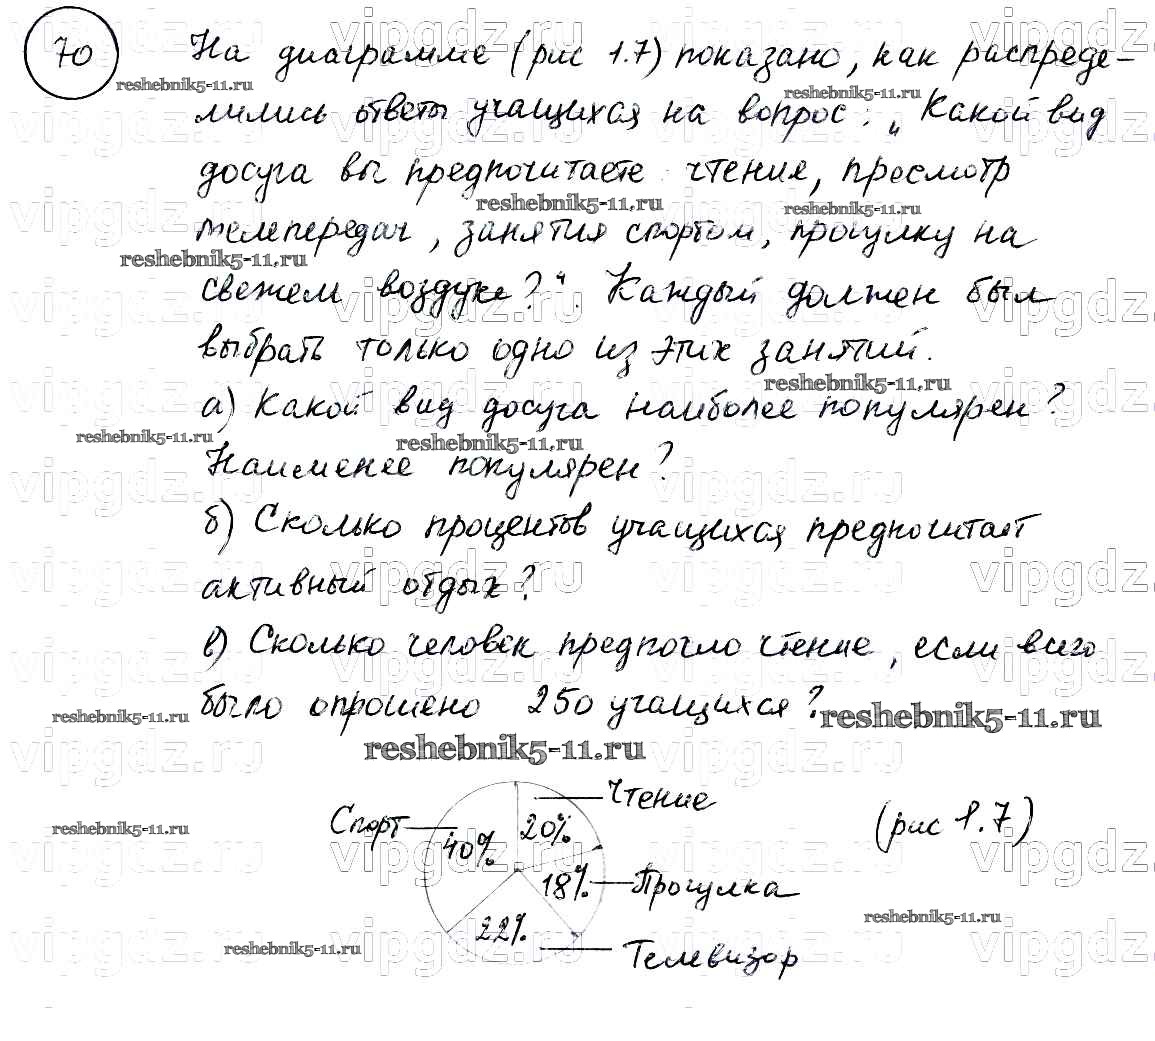 70 На диаграмме (рис 1.7) показано, как распреде-
лились ответы учащихся на вопрос: „Какой вид
досуга вы предпочитаете: чтение, просмотр
телепередач, занятия спортом, прогулку на
свежем воздухе?“. Каждый должен был
выбрать только одно из этих занятий.
а) Какой вид досуга наиболее популярен?
Наименее популярен?
б) Сколько процентов учащихся предпочитает
активный отдых?
в) Сколько человек предпочло чтение, если всего
было опрошено 250 учащихся?
Чтение
Спорт
(рис 1.7)
20%
40%
18%
Прогулка
22%
Телевизор
reshebnik5-11.ru
vipgdz.ru